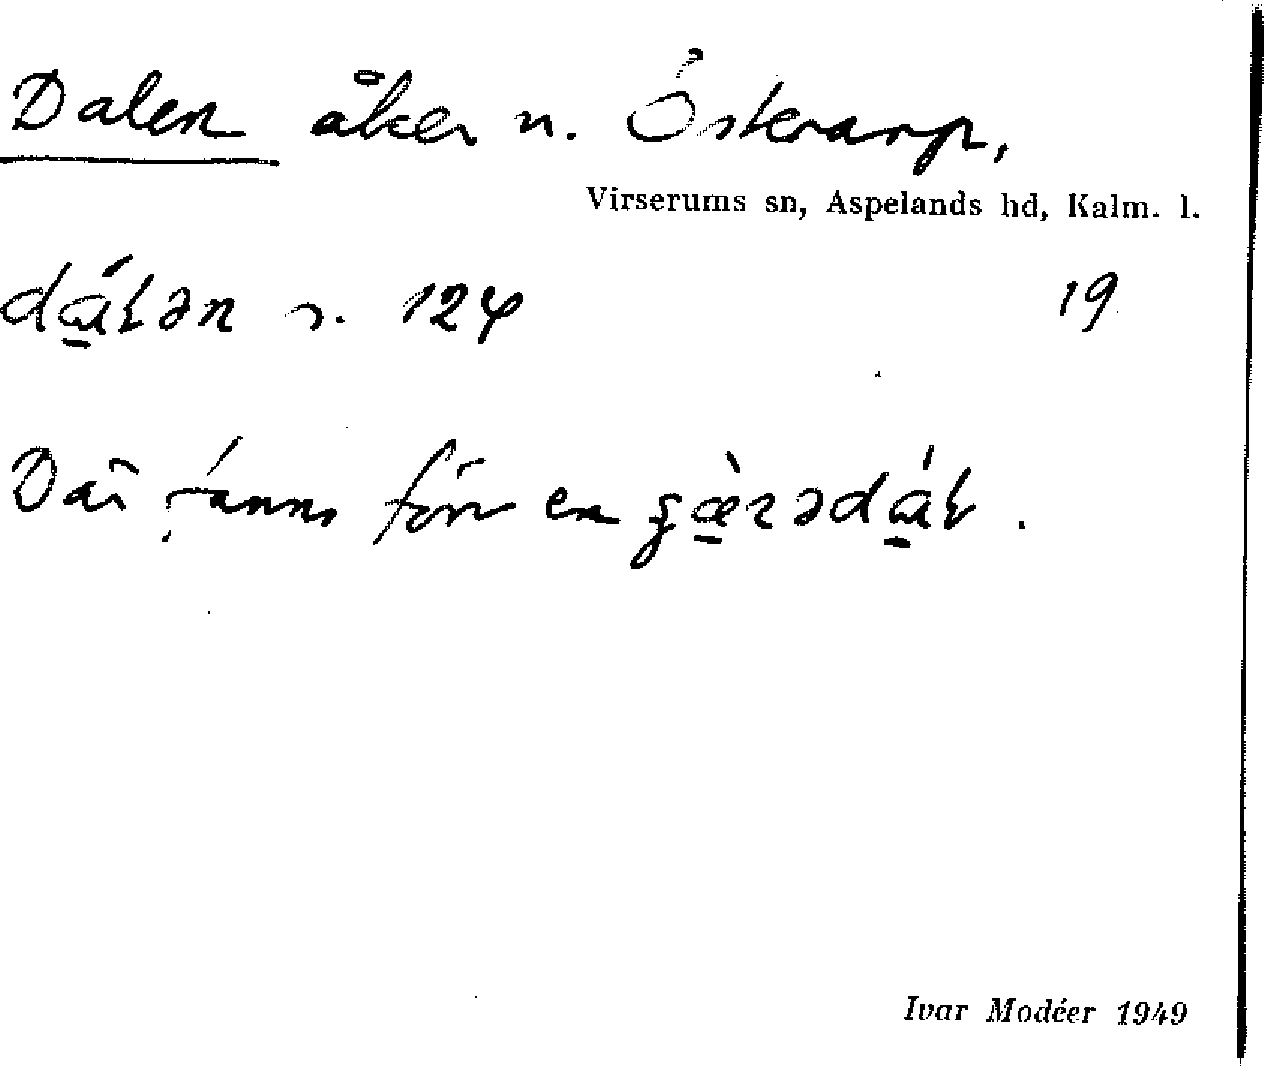 Dalen åker n. Österarp,
Virserums sn, Aspelands hd, Kalm. l.
dɑ́ɫən s. 124 19
Där fanns förr en gæ̀rədɑ́ɫ.
Ivar Modéer 1949